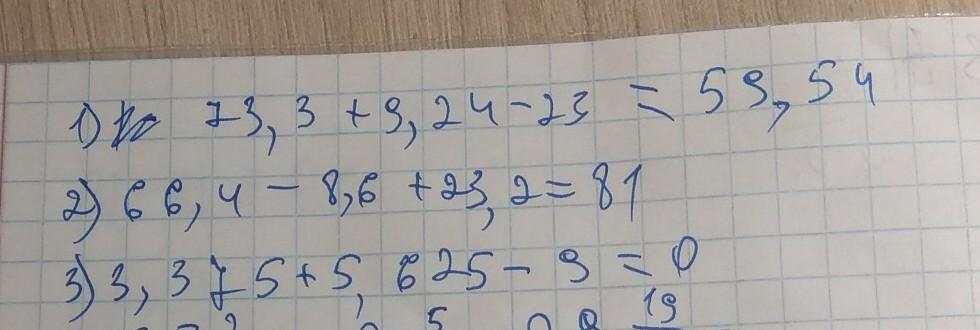 1) 73,3 + 9,24 - 23 = 59,54
2) 66,4 - 8,6 + 23,2 = 81
3) 3,375 + 5,625 - 9 = 0
19